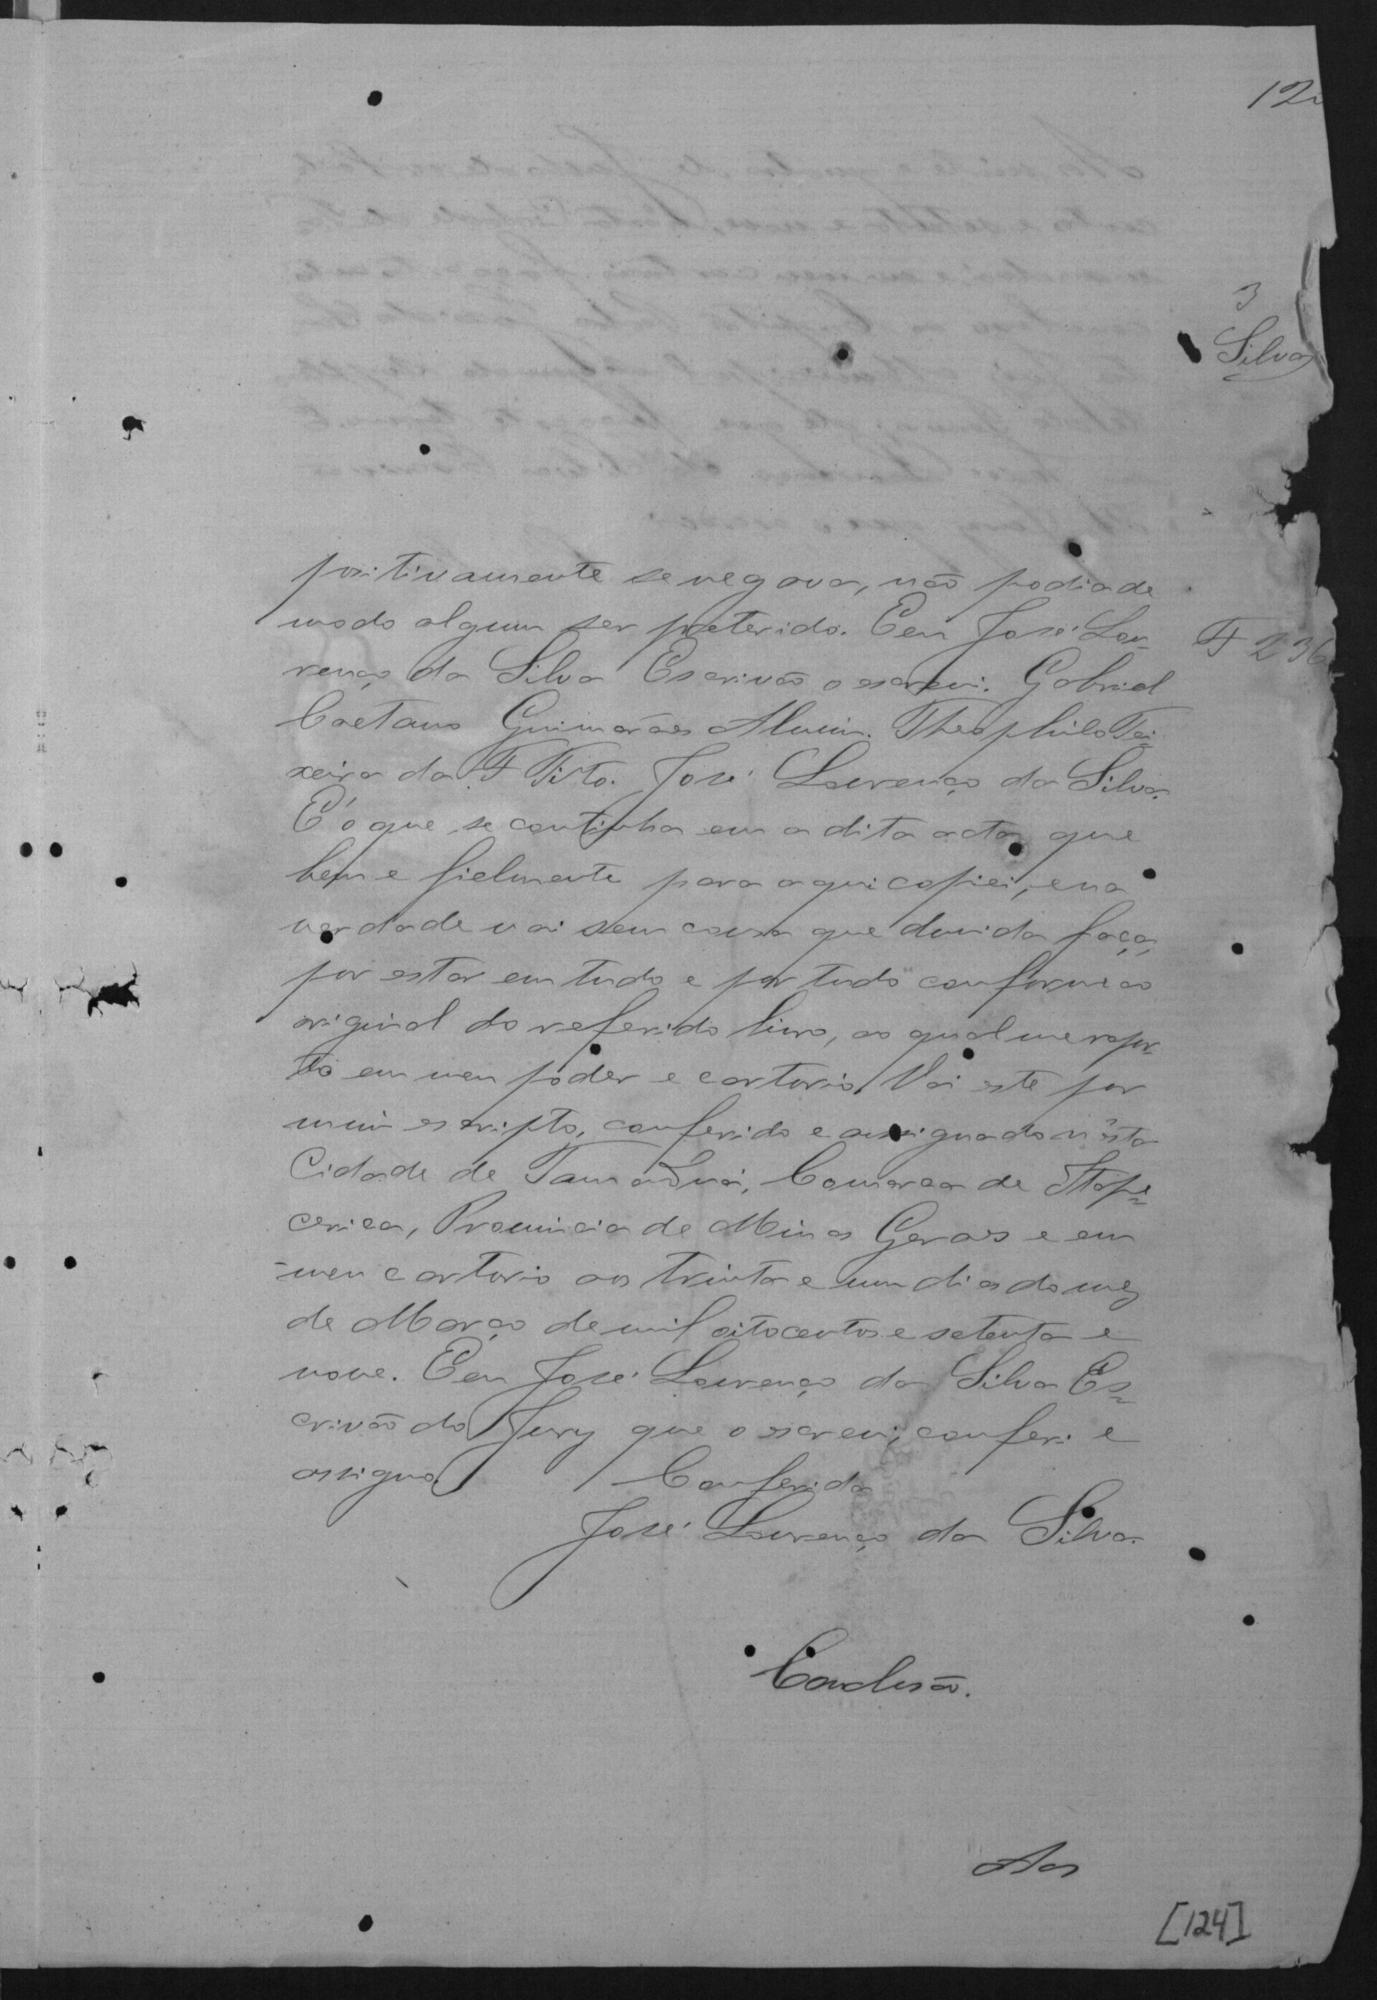 12
3
Silva
positivamente se negava, não podia de
modo algum ser preterido. E eu José Lou-
renço da Silva Escrivão o escrevi. Gabriel
Caetano Guimarães Alvim. Theophilo Tei-
xeira da F Tito. José Lourenço da Silva.
F 236
E' o que se continha em a dita acta que
bem e fielmente para aqui copiei, e na
verdade vai sem cousa que duvida faça,
por estar em tudo e por tudo conforme ao
original do referido livro, ao qual me repor-
to em meu poder e cartorio. Vai este por
mim escripto, conferido e assignado n'esta
Cidade de Tamanduá, Comarca de Itape-
cerica, Provincia de Minas Geraes e em
meu cartorio aos trinta e um dias do mez
de Março de mil oitocentos e setenta e
nove. E eu José Lourenço da Silva Es-
crivão do Jury que o escrevi, conferi e
assigno. Conferido
José Lourenço da Silva.
Conclusão.
Aos
[124]